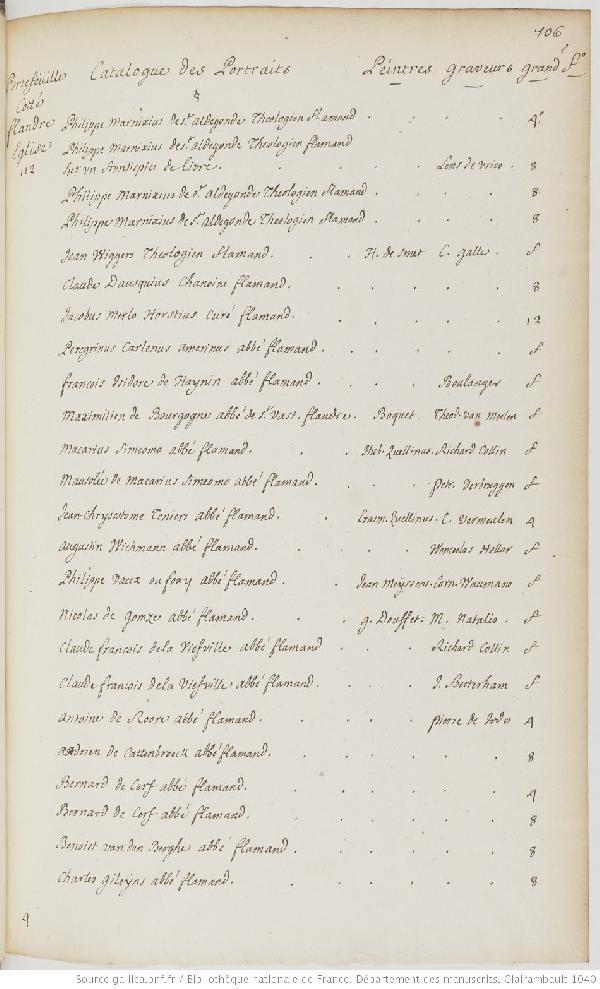 106
Portefeuille Cotté flandre Eglise 112
Catalogue des Portraits Peintres graveurs grandr fo
Philippe Marnixius de st aldegonde Theologien flamand . . . . 4o
Philippe Marnixius de st aldegonde Theologien flamand
sur un frontispice de livre . . . . Lens de vrico . 8
Philippe Marnixius de st aldegonde Theologien flamand . . . . 8
Philippe Marnixius de st aldegonde Theologien flamand . . . . 8
Jean Wiggers Theologien flamand . . . H. de smet C. Galle . f
Claude Dausquius Chanoine flamand . . . . . 8
Jacobus Merlo Horstius Curé flamand . . . . . 12
Peregrinus Carlenus amerinus abbé flamand . . . . . f
françois Isidore de Haynin abbé flamand . . . . Boulanger f
Maximilien de Bourgogne abbé de st Vast. flandre . Boquet . Theod. van Merlen f
Macarius Simeomo abbé flamand . . . Theb. Quellinus . Richard Collin f
Mausolée de Macarius Simeomo abbé flamand . . . . Petr. Verbruggen f
Jean Chrysostome Teniers abbé flamand . . Erasm. Quellinus . C. Vermeulen 4
Augustin Wichmann abbé flamand . . . . Wenceslas Hollar f
Philippe Vacca ou foory abbé flamand . . Jean Meyssens . Corn. Waumans f
Nicolas de Gomze abbé flamand . . . g. Douffet . M. Natalis . f
Claude francois de la Viefville abbé flamand . . . Richard Collin f
Claude francois de la Viefville abbé flamand . . . J. Betterham f
Antoine de Roore abbé flamand . . . . pierre de Jode 4
Adrien de Cattenbroeck abbé flamand . . . . . 8
Bernard de Cerf abbé flamand . . . . . 4
Bernard de Cerf abbé flamand . . . . . 8
Benoist van den Berghe abbé flamand . . . . . 8
Charles gileyns abbé flamand . . . . . 8
4
Source gallica.bnf.fr / Bibliothèque nationale de France. Département des manuscrits. Clairambault 1040